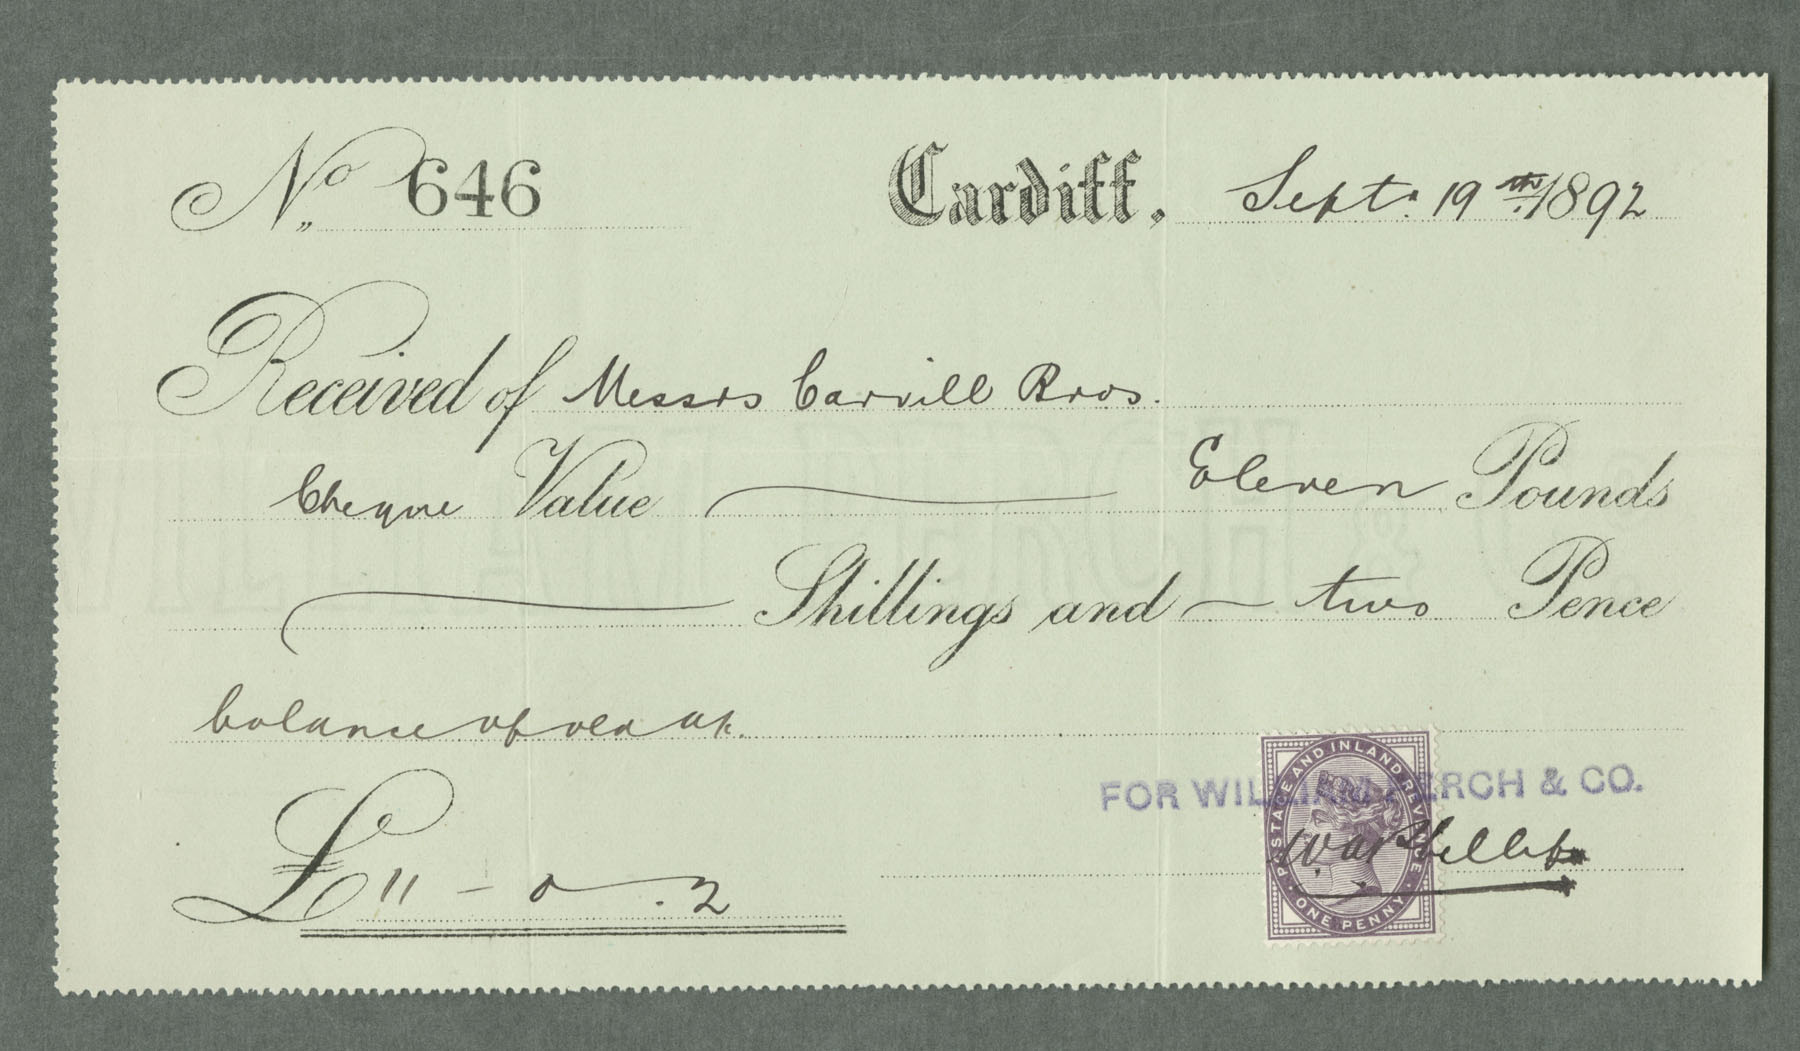 No 646 Cardiff, Sept. 19th 1892
Received of Messrs Carvill Bros.
Cheque Value Eleven Pounds
Shillings and two Pence
balance of old a/c.
£ 11 - 0 . 2
FOR WILLIAM PERCH & CO.
POSTAGE AND INLAND REVENUE
ONE PENNY